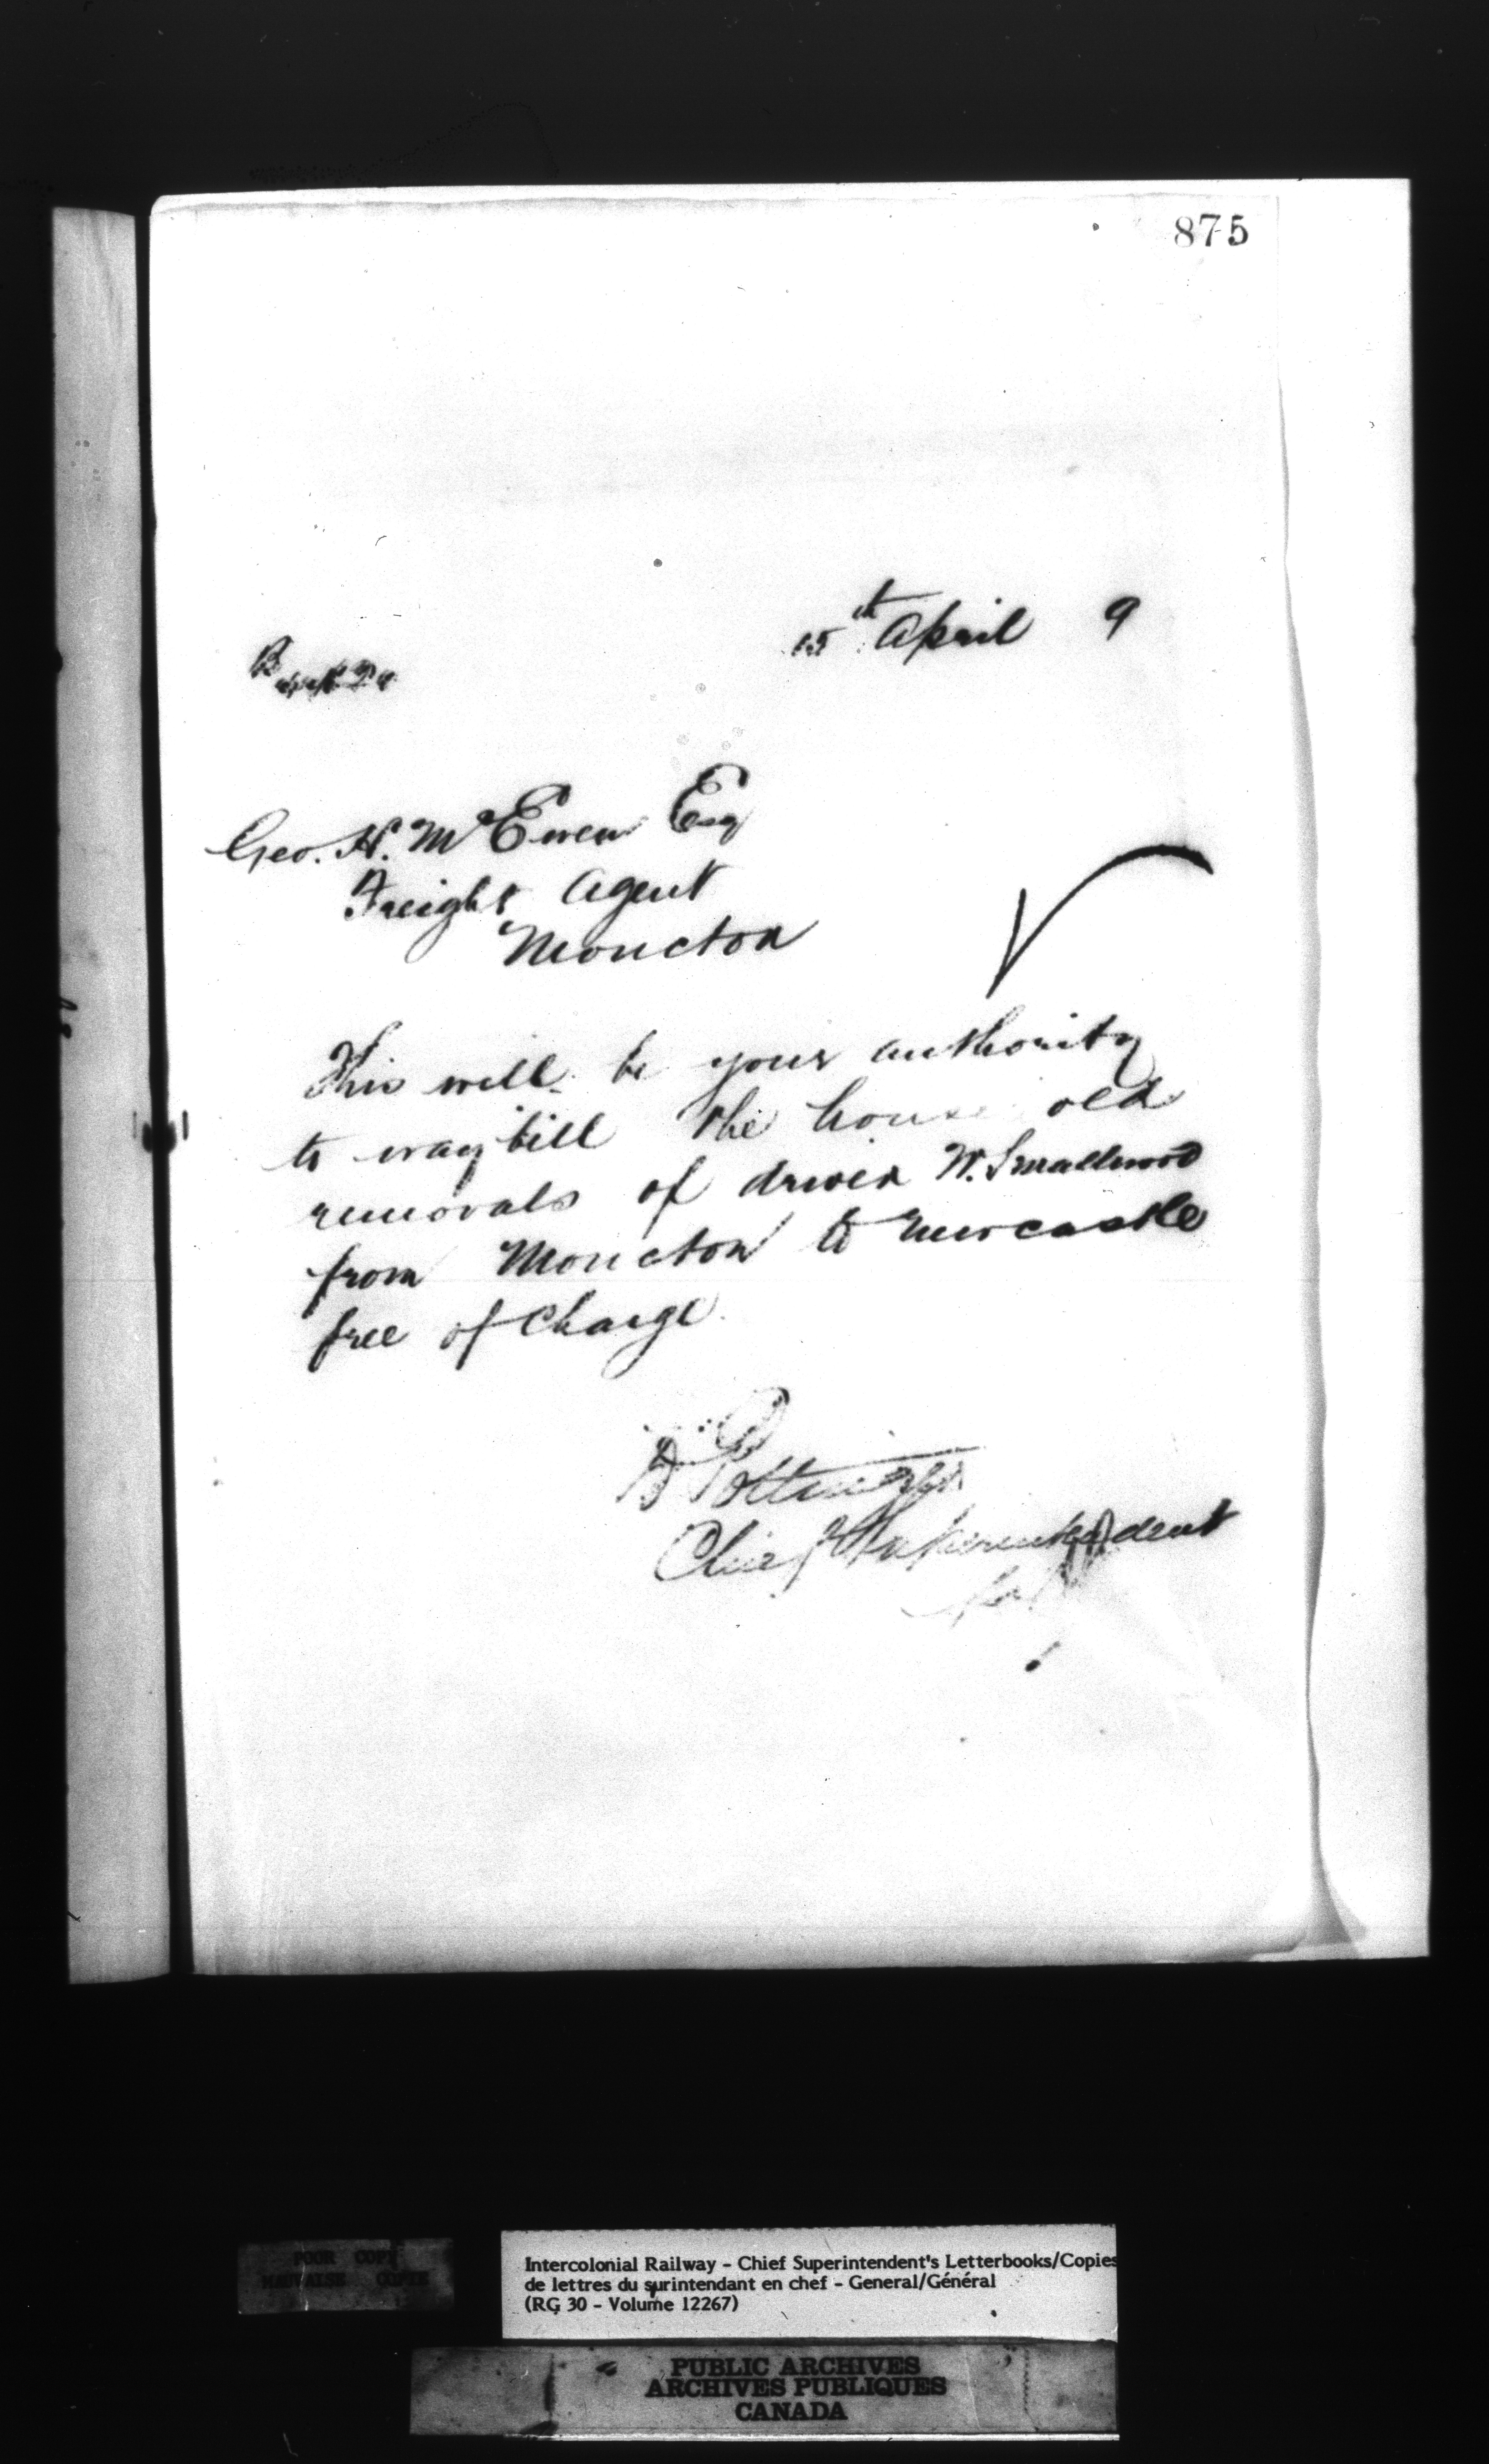 875
15th April 9
Geo. H. McEwen Esq
Freight Agent
Moncton
This will be your authority
to waybill the house old
removals of driver W. Smallwood
from Moncton to Newcastle
free of Charge.
D Pottinger
Chief Superintendent
POOR COPY
MAUVAISE COPIE
Intercolonial Railway - Chief Superintendent's Letterbooks/Copies
de lettres du surintendant en chef - General/Général
(RG 30 - Volume 12267)
PUBLIC ARCHIVES
ARCHIVES PUBLIQUES
CANADA